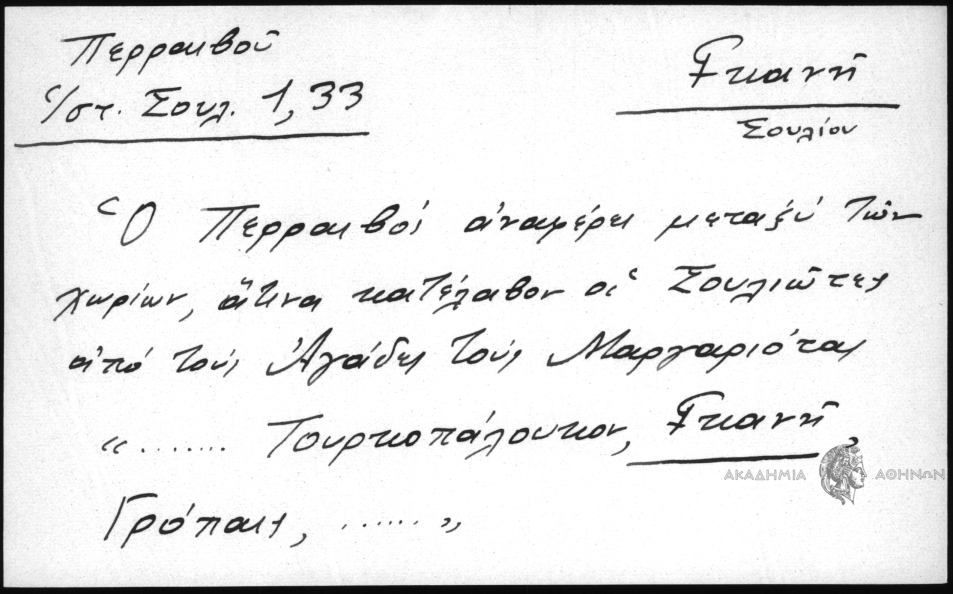 Περραιβοῦ
Ἱστ. Σουλ. 1,33
Γκανῆ
Σουλίου
Ὁ Περραιβός ἀναφέρει μεταξύ τῶν
χωρίων, ἅτινα κατέλαβον οἱ Σουλιῶτες
ἀπό τούς Ἀγάδες τούς Μαργαριότας
«....... Τουρκοπάλουκον, Γκανῆ,
Γρόπαις, ......»
ΑΚΑΔΗΜΙΑ ΑΘΗΝΩΝ